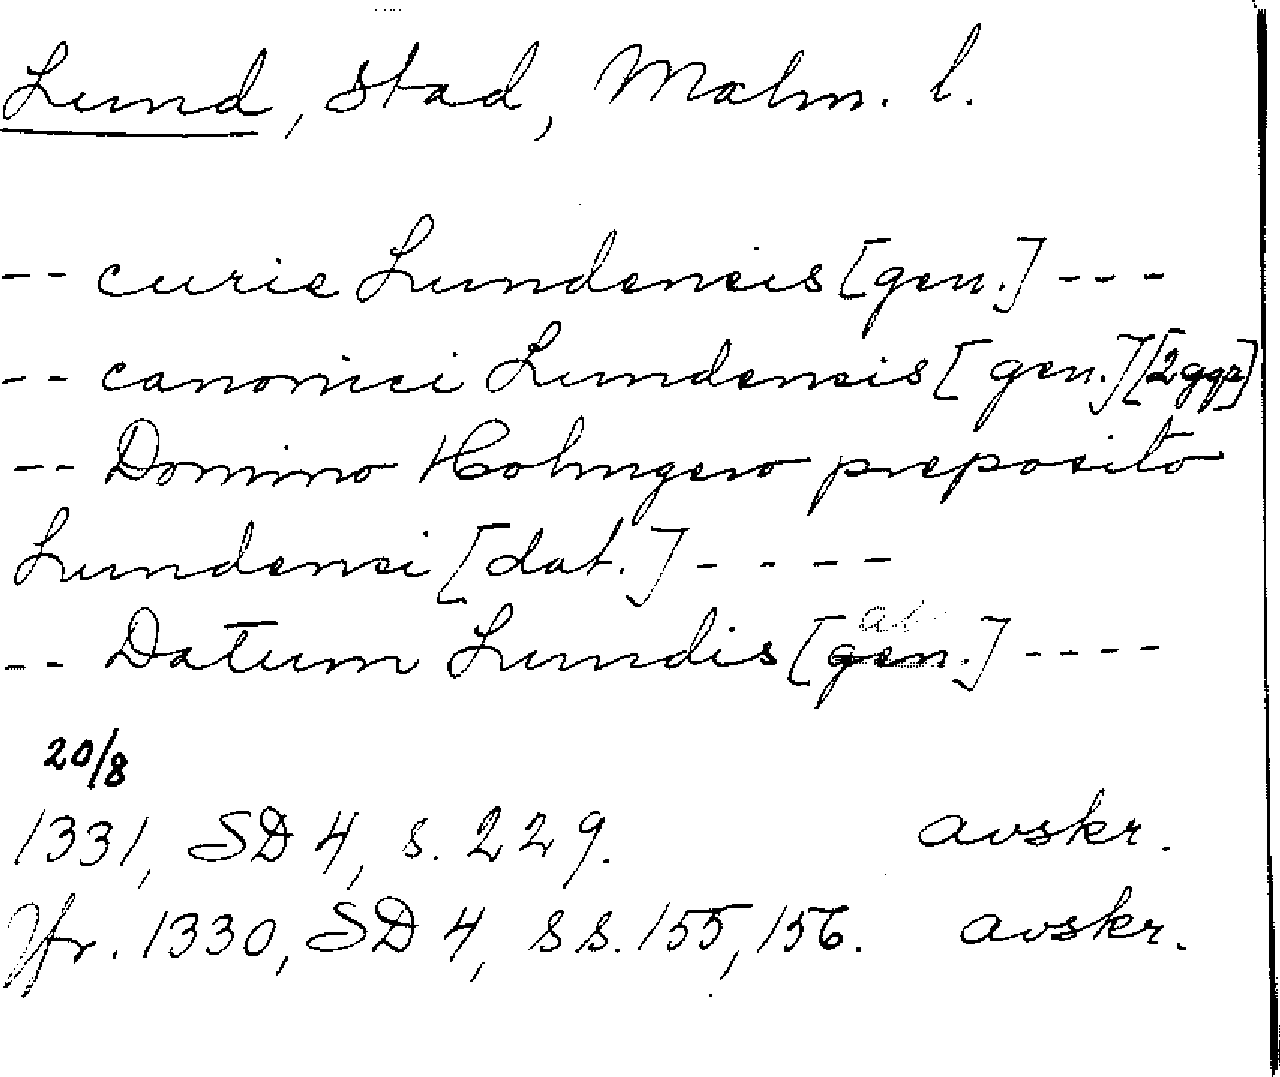 Lund, stad, Malm. l.
-- curie Lundensis [gen.] ---
-- canonici Lundensis [gen.] [2 ggr]
-- Domino Holmgero preposito
Lundensi [dat.] ----
-- Datum Lundis [gen.] ----
abl.
20/8
1331, SD 4, s. 229. avskr.
Jfr. 1330, SD 4, ss. 155, 156. avskr.